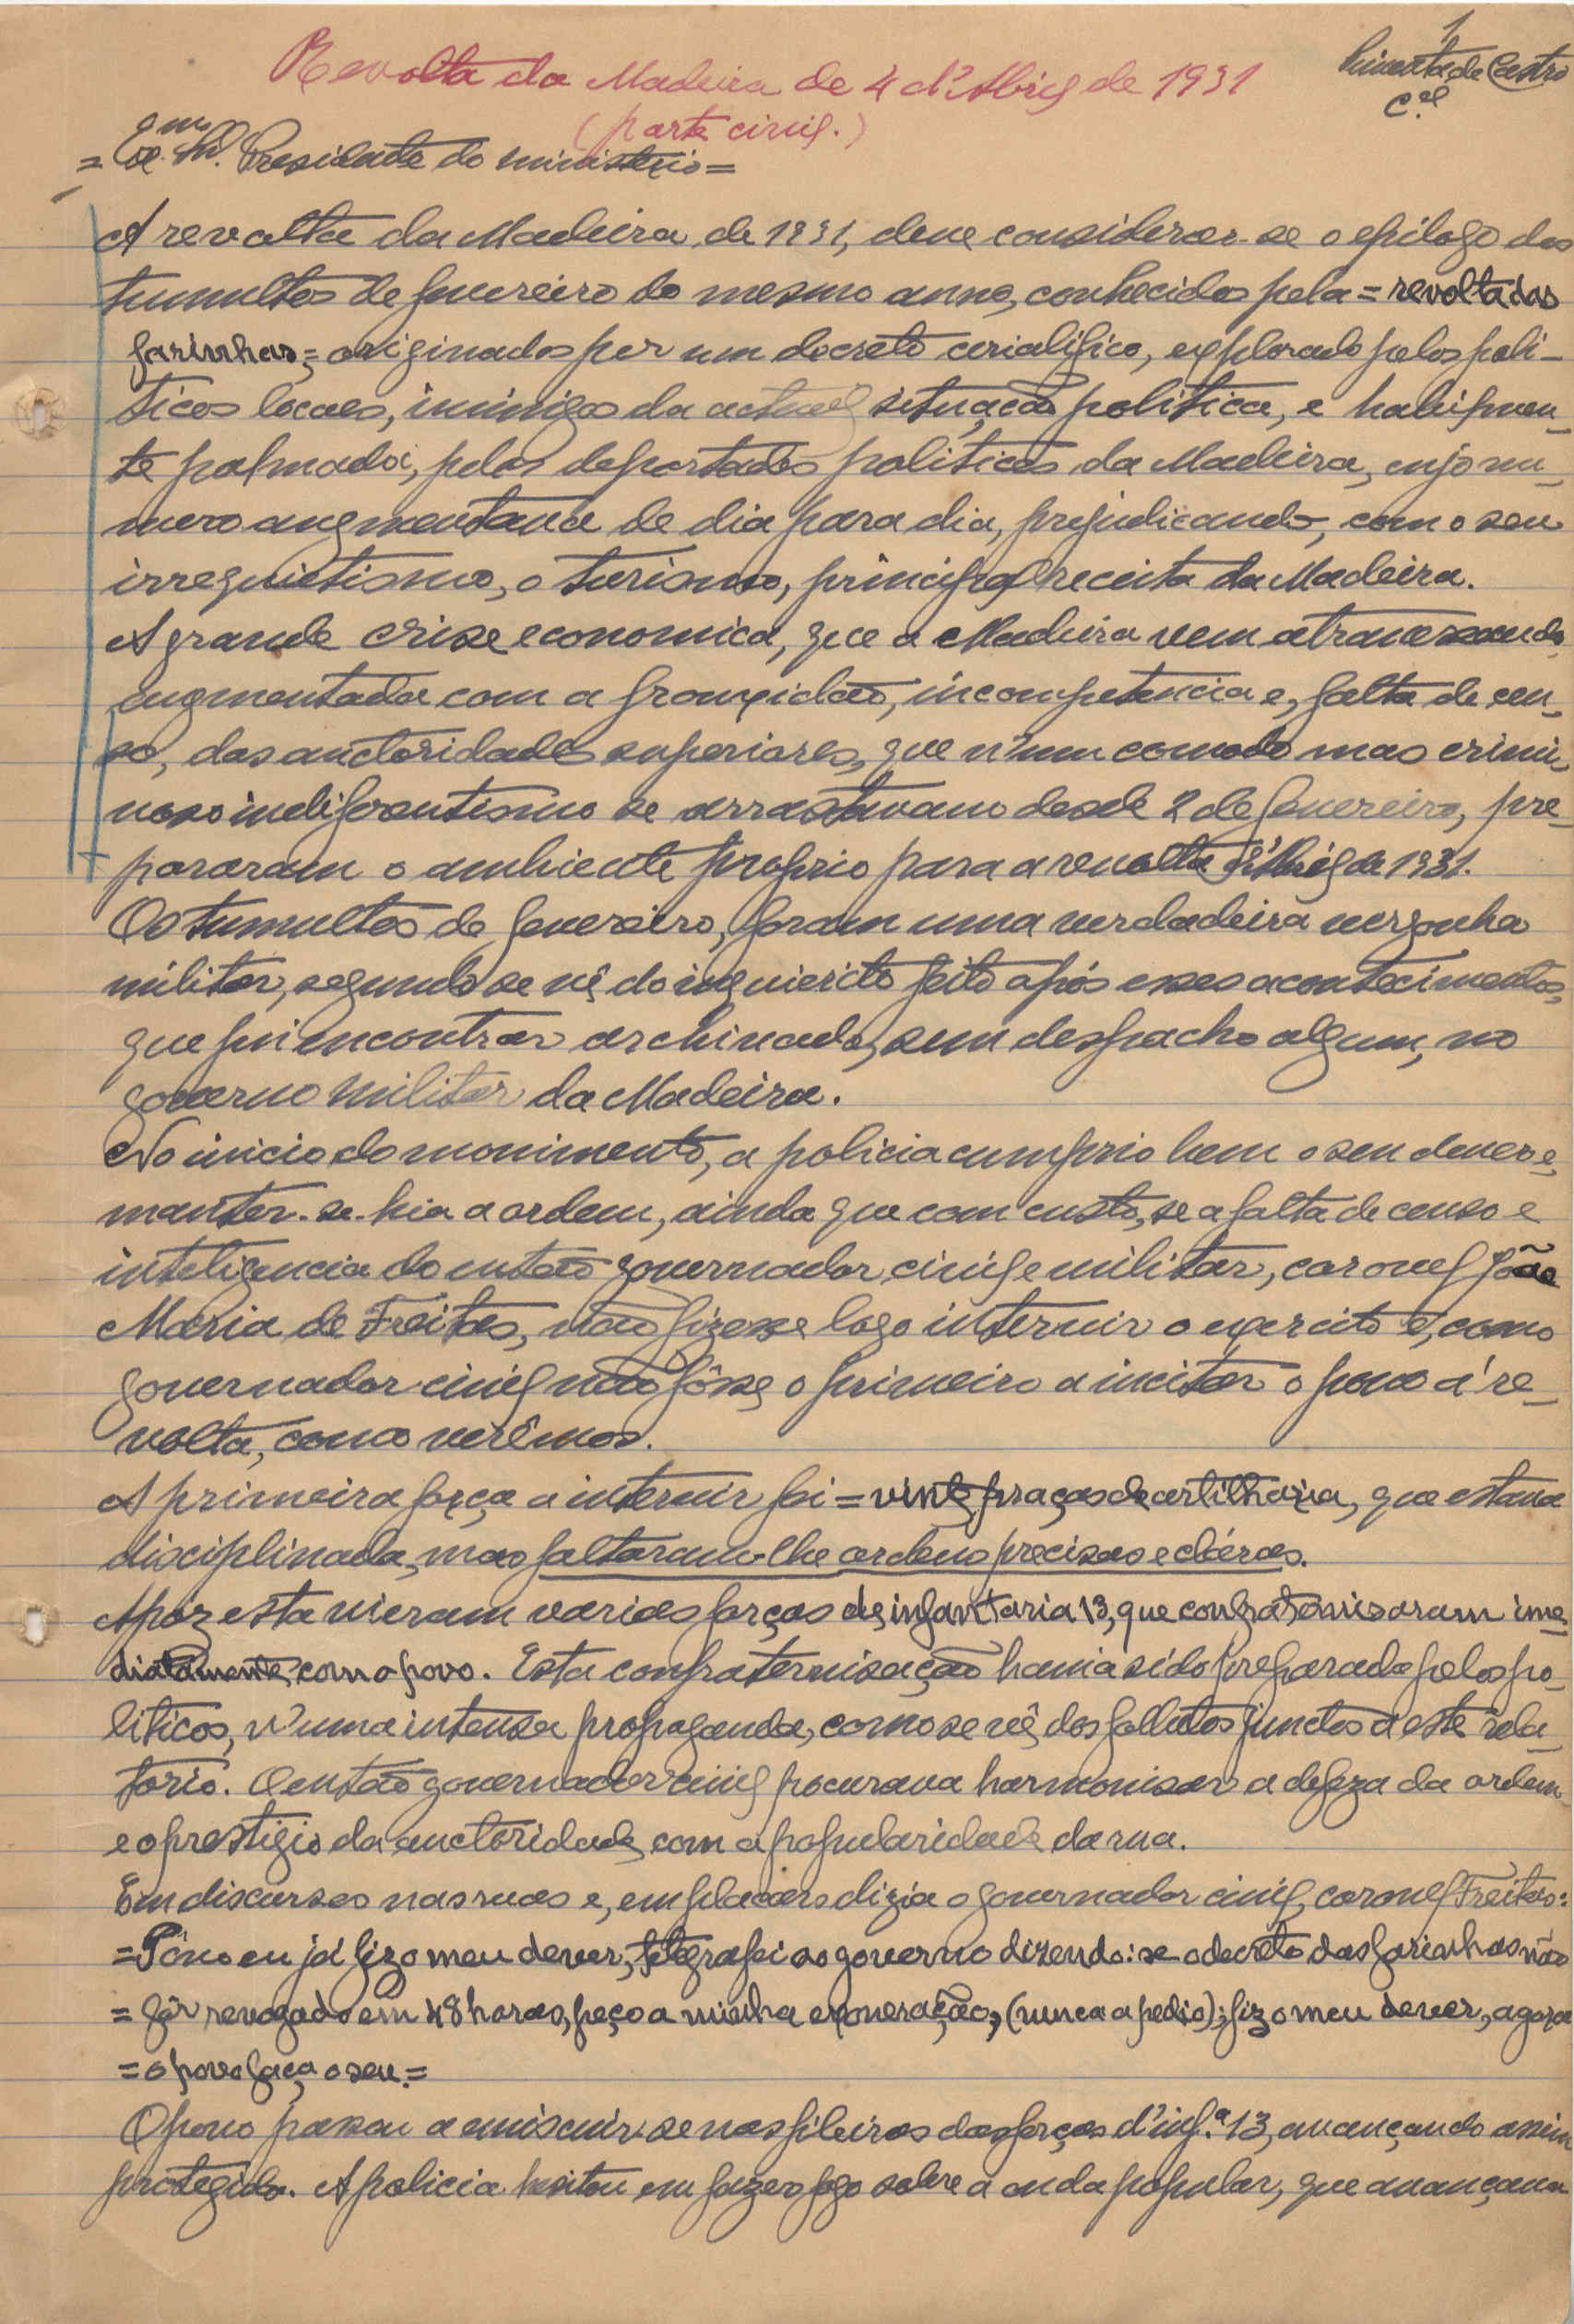 1
Pimenta de Castro
C.el
Revolta da Madeira de 4 d'Abril de 1931
(parte civil.)
= Ex.mo Sr. Presidente do ministerio =
A revolta da Madeira, de 1931, deve considerar-se o epilogo dos
tumultos de fevereiro do mesmo anno, conhecidos pela = revolta das
farinhas = originados por um decreto cerialifico, explorado pelos poli-
ticos locaes, inimigos da actual situação politica, e habilmen-
te , pelos deportados politicos da Madeira, cujo nu-
mero augmentava de dia para dia, prejudicando, com o seu
irrequietismo, o turismo, principal receita da Madeira.
A grande crise economica, que a Madeira vem atravessando,
augmentada com a frouxidão, incompetencia e, falta de cen-
so, das auctoridades superiores, que n'um comodo mas crimi-
noso indiferentismo se arrastavam desde 2 de fevereiro, pre-
pararam o ambiente proprio para a revolta d'Abril de 1931.
Os tumultos de fevereiro, foram uma verdadeira vergonha
militar, segundo se vê do inquierito feito após esses acontecimentos,
que fui encontrar archivado, sem despacho algum, no
governo militar da Madeira.
No inicio do movimento, a policia cumprio bem o seu dever e,
manter-se-hia a ordem, ainda que com custo, se a falta de censo e
inteligencia do então governador civil e militar, coronel João
Maria de Freitas, não fizesse logo intervir o exercito e, como
governador civil não fôsse o primeiro a incitar o povo á re-
volta, como verêmos.
A primeira força a intervir foi = vinte praças de artilharia, que estava
disciplinada, mas faltaram-lhe ordens precisas e cláras.
Apoz esta vieram varias forças de infantaria 13, que confraternisaram ime-
diatamente com o povo. Esta confraternisação havia sido preparada pelos po-
liticos, n'uma intensa propaganda, como se vê dos folhetos junctos a este rela-
torio. O então governador civil procurava harmonisar a defeza da ordem
e o prestigio da auctoridade, com a popularidade da rua.
Em discursos nas ruas e, em placars dizia o governador civil, coronel Freitas:
= Pôvo eu já fiz o meu dever, telegrafei ao governo dizendo: se o decreto das farinhas não
= fôr revogado em 48 horas, peço a minha exoneração, (nunca a pedio); fiz o meu dever, agora
= o povo faça o seu. =
O povo passou a emiscuir-se nas fileiras das forças d'inf.ª 13, avançando assim
protegido. A policia hesitou em fazer fogo sobre a onda popular, que avançava